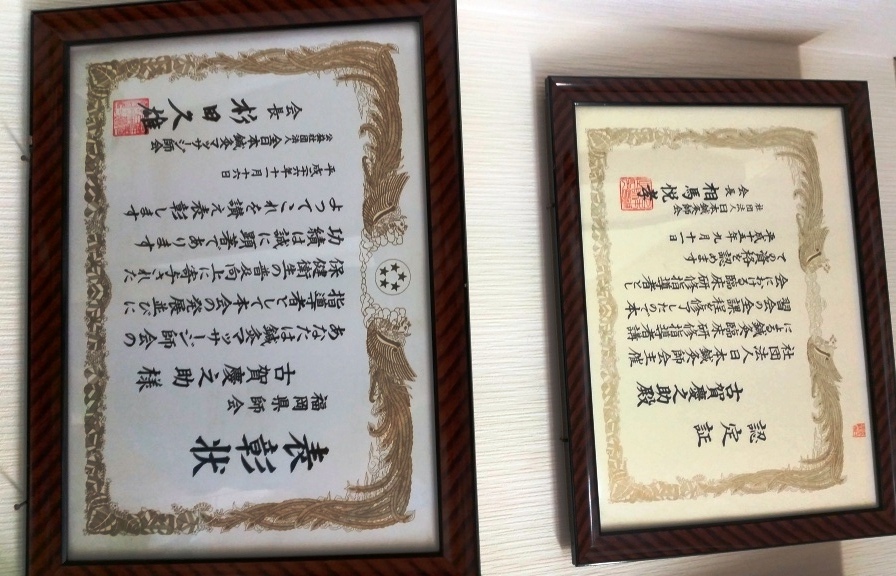 表彰状
福岡県師会
古賀慶之助様
あなたは鍼灸マッサージ師会の
指導者として本会の発展並びに
保健衛生の普及向上に寄与された
功績は誠に顕著であります
よってこれを讃え表彰します
平成六年十一月十六日
公益社団法人全日本鍼灸マッサージ師会
会長 杉田久雄
認定証
古賀慶之助殿
社団法人日本鍼灸師会主催
による鍼灸臨床研修指導者講
習会の全課程を修了したので本
会における臨床研修指導者とし
て資格を認めます
平成十五年九月十一日
社団法人日本鍼灸師会
会長 相馬悦孝